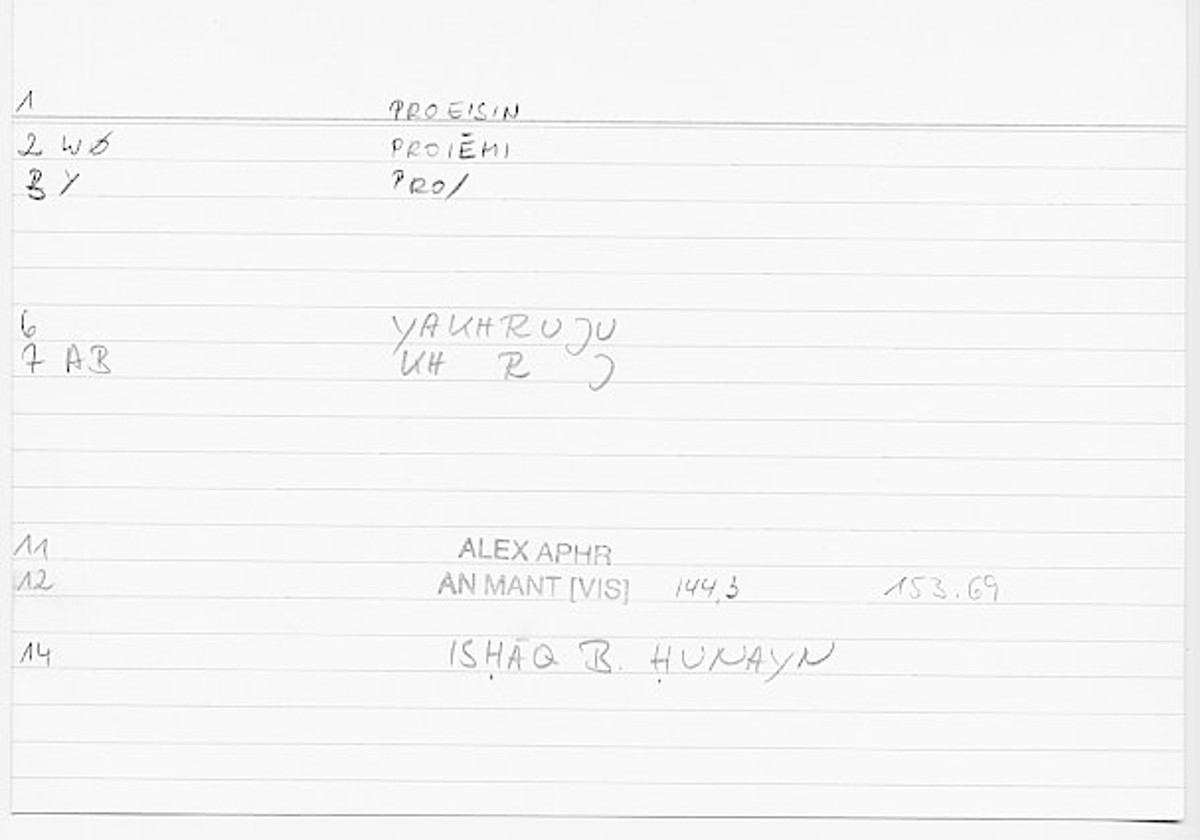 1 PROEISIN
2 WØ PROIĒMI
3 Y PRO/
6 YAKHRUJU
7 AB KH R J
11 ALEX APHR
12 AN MANT [VIS] 144,3 153.69
14 ISḤĀQ B. ḤUNAYN